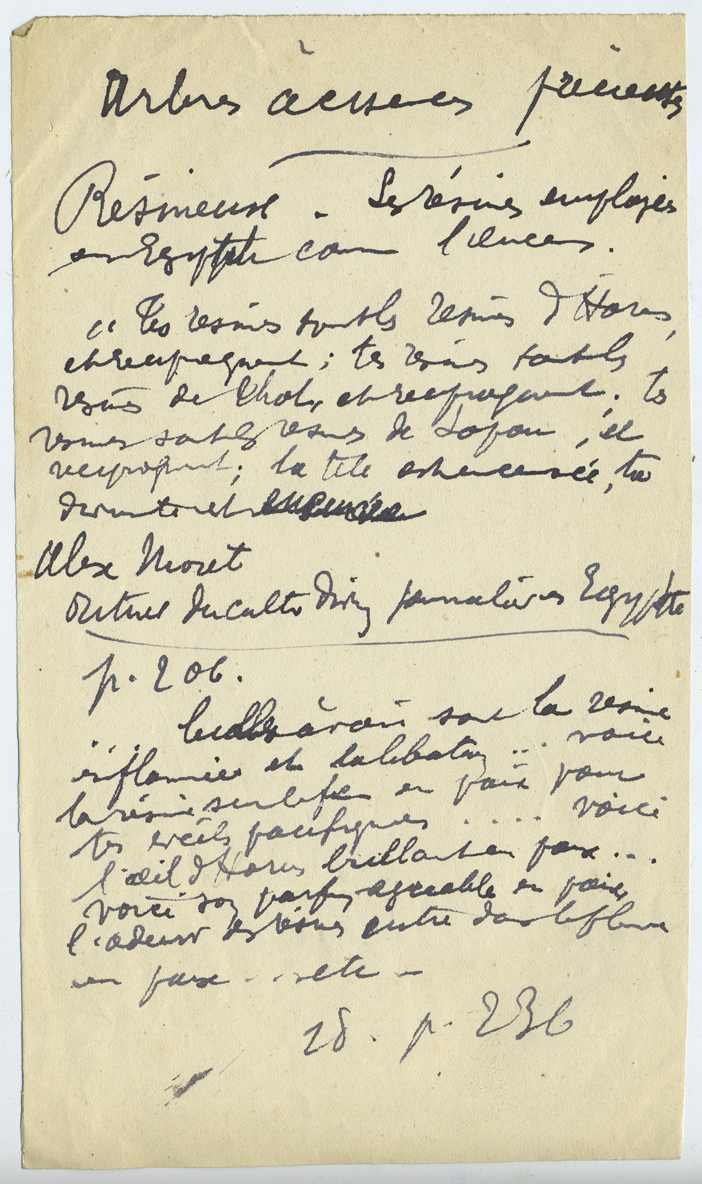 Arbres à essences précieuses
Résineux - Les résines employées
en Egypte comme l'encens.
"Tes resines sont les resines d'Horus,
et reciproquement ; tes resines sont les
resines de Thot, et reciproquement. tes
resines sont les resines de Sopou, et
reciproquement ; ta tête est encensée, ta
et
Alex Moret
Rituel du culte divin journalier en Egypte
p. 206.
sont la resine
enflammée et ... voici
la résine sur le feu en paix pour
tes pacifiques ..... voici
l'œil d'Horus brillant en paix ...
voici son parfum agreable en paix
l'odeur des résines entre dans la flamme
en paix ... etc -
id. p. 236